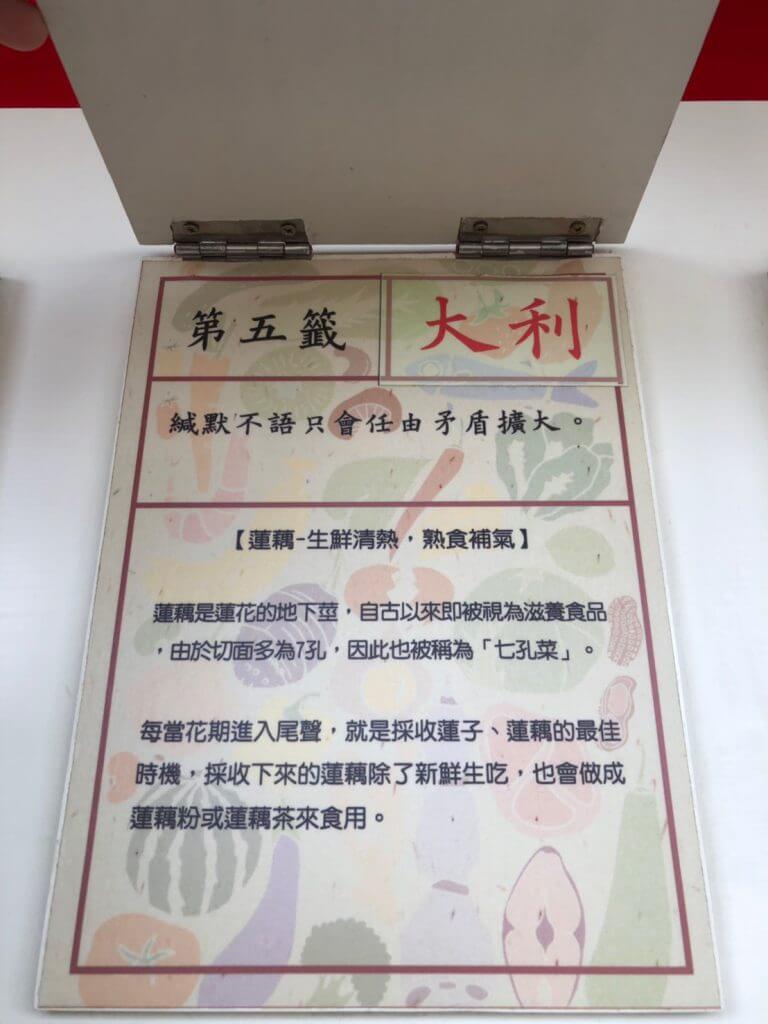 第五籤
大利
緘默不語只會任由矛盾擴大。
【蓮藕-生鮮清熱,熟食補氣】
蓮藕是蓮花的地下莖,自古以來即被視為滋養食品
,由於切面多為7孔,因此也被稱為「七孔菜」。
每當花期進入尾聲,就是採收蓮子、蓮藕的最佳
時機,採收下來的蓮藕除了新鮮生吃,也會做成
蓮藕粉或蓮藕茶來食用。